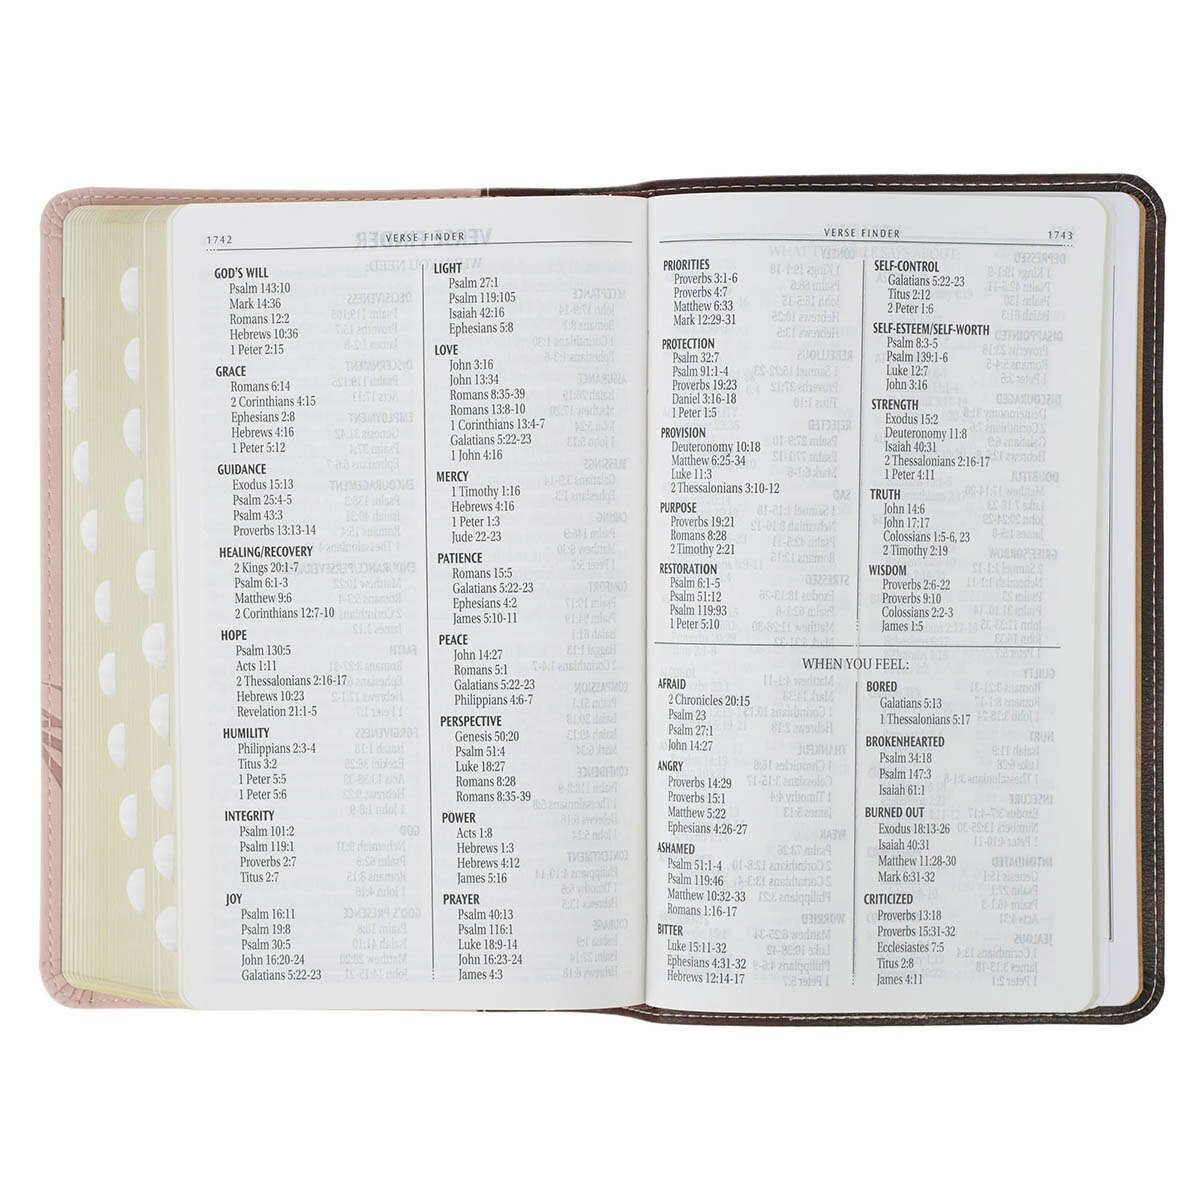 1742
VERSE FINDER
GOD'S WILL
Psalm 143:10
Mark 14:36
Romans 12:2
Hebrews 10:36
1 Peter 2:15
GRACE
Romans 6:14
2 Corinthians 4:15
Ephesians 2:8
Hebrews 4:16
1 Peter 5:12
GUIDANCE
Exodus 15:13
Psalm 25:4-5
Psalm 43:3
Proverbs 13:13-14
HEALING/RECOVERY
2 Kings 20:1-7
Psalm 6:1-3
Matthew 9:6
2 Corinthians 12:7-10
HOPE
Psalm 130:5
Acts 1:11
2 Thessalonians 2:16-17
Hebrews 10:23
Revelation 21:1-5
HUMILITY
Philippians 2:3-4
Titus 3:2
1 Peter 5:5
1 Peter 5:6
INTEGRITY
Psalm 101:2
Psalm 119:1
Proverbs 2:7
Titus 2:7
JOY
Psalm 16:11
Psalm 19:8
Psalm 30:5
John 16:20-24
Galatians 5:22-23
LIGHT
Psalm 27:1
Psalm 119:105
Isaiah 42:16
Ephesians 5:8
LOVE
John 3:16
John 13:34
Romans 8:35-39
Romans 13:8-10
1 Corinthians 13:4-7
Galatians 5:22-23
1 John 4:16
MERCY
1 Timothy 1:16
Hebrews 4:16
1 Peter 1:3
Jude 22-23
PATIENCE
Romans 15:5
Galatians 5:22-23
Ephesians 4:2
James 5:10-11
PEACE
John 14:27
Romans 5:1
Galatians 5:22-23
Philippians 4:6-7
PERSPECTIVE
Genesis 50:20
Psalm 51:4
Luke 18:27
Romans 8:28
Romans 8:35-39
POWER
Acts 1:8
Hebrews 1:3
Hebrews 4:12
James 5:16
PRAYER
Psalm 40:13
Psalm 116:1
Luke 18:9-14
John 16:23-24
James 4:3
VERSE FINDER
1743
PRIORITIES
Proverbs 3:1-6
Proverbs 4:7
Matthew 6:33
Mark 12:29-31
PROTECTION
Psalm 32:7
Psalm 91:1-4
Proverbs 19:23
Daniel 3:16-18
1 Peter 1:5
PROVISION
Deuteronomy 10:18
Matthew 6:25-34
Luke 11:3
2 Thessalonians 3:10-12
PURPOSE
Proverbs 19:21
Romans 8:28
2 Timothy 2:21
RESTORATION
Psalm 6:1-5
Psalm 51:12
Psalm 119:93
1 Peter 5:10
SELF-CONTROL
Galatians 5:22-23
Titus 2:12
2 Peter 1:6
SELF-ESTEEM/SELF-WORTH
Psalm 8:3-5
Psalm 139:1-6
Luke 12:7
John 3:16
STRENGTH
Exodus 15:2
Deuteronomy 11:8
Isaiah 40:31
2 Thessalonians 2:16-17
1 Peter 4:11
TRUTH
John 14:6
John 17:17
Colossians 1:5-6, 23
2 Timothy 2:19
WISDOM
Proverbs 2:6-22
Proverbs 9:10
Colossians 2:2-3
James 1:5
WHEN YOU FEEL:
AFRAID
2 Chronicles 20:15
Psalm 23
Psalm 27:1
John 14:27
ANGRY
Proverbs 14:29
Proverbs 15:1
Matthew 5:22
Ephesians 4:26-27
ASHAMED
Psalm 51:1-4
Psalm 119:46
Matthew 10:32-33
Romans 1:16-17
BITTER
Luke 15:11-32
Ephesians 4:31-32
Hebrews 12:14-17
BORED
Galatians 5:13
1 Thessalonians 5:17
BROKENHEARTED
Psalm 34:18
Psalm 147:3
Isaiah 61:1
BURNED OUT
Exodus 18:13-26
Isaiah 40:31
Matthew 11:28-30
Mark 6:31-32
CRITICIZED
Proverbs 13:18
Proverbs 15:31-32
Ecclesiastes 7:5
Titus 2:8
James 4:11